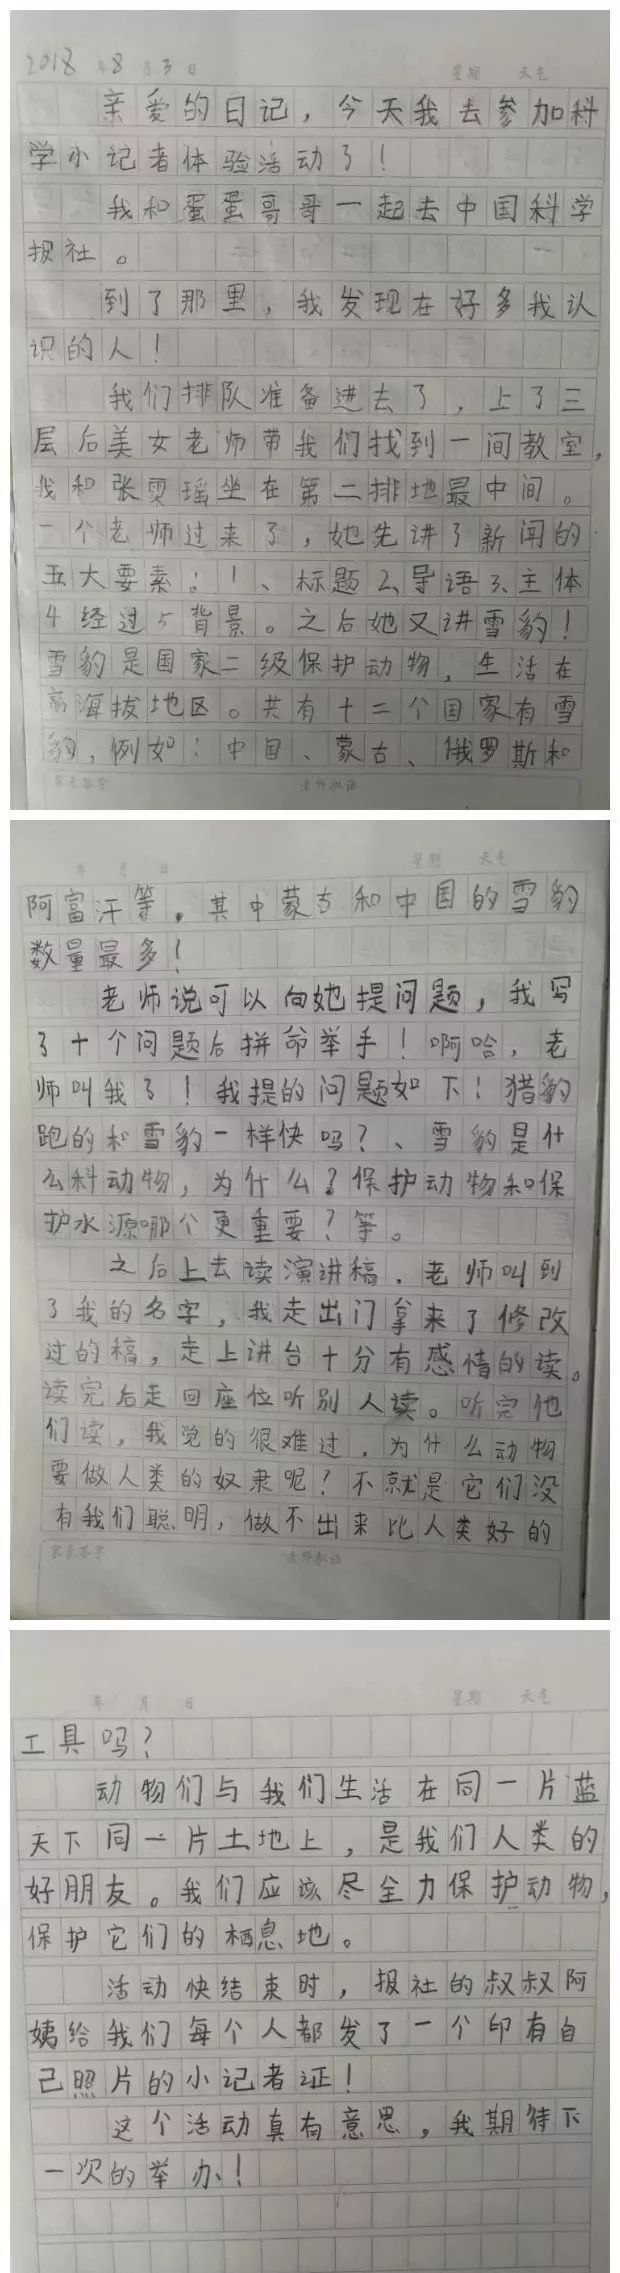 2018年8月3日 星期 天气
亲爱的日记，今天我去参加科
学小记者体验活动了！
我和蛋蛋哥哥一起去中国科学
报社。
到了那里，我发现在好多我认
识的人！
我们排队准备进去了，上了三
层后美女老师带我们找到一间教室，
我和张雯瑶坐在第二排地最中间。
一个老师过来了，她先讲了新闻的
五大要素：1、标题2、导语3、主体
4经过5背景。之后她又讲雪豹！
雪豹是国家二级保护动物，生活在
高海拔地区。共有十二个国家有雪
豹，例如：中国、蒙古、俄罗斯和
家长签字 老师私语
年 月 日 星期 天气
阿富汗等。其中蒙古和中国的雪豹
数量最多！
老师说可以向她提问题，我写
了十个问题后拼命举手！啊哈，老
师叫我了！我提的问题如下！猎豹
跑的和雪豹一样快吗？、雪豹是什
么科动物，为什么？保护动物和保
护水源哪个更重要？等。
之后上去读演讲稿，老师叫到
了我的名字，我走出门拿来了修改
过的稿，走上讲台十分有感情的读。
读完后走回座位听别人读。听完他
们读，我觉的很难过，为什么动物
要做人类的奴隶呢？不就是它们没
有我们聪明，做不出来比人类好的
家长签字 老师私语
年 月 日 星期 天气
工具吗？
动物们与我们生活在同一片蓝
天下同一片土地上，是我们人类的
好朋友。我们应该尽全力保护动物，
保护它们的栖息地。
活动快结束时，报社的叔叔阿
姨给我们每个人都发了一个印有自
己照片的小记者证！
这个活动真有意思，我期待下
一次的举办！